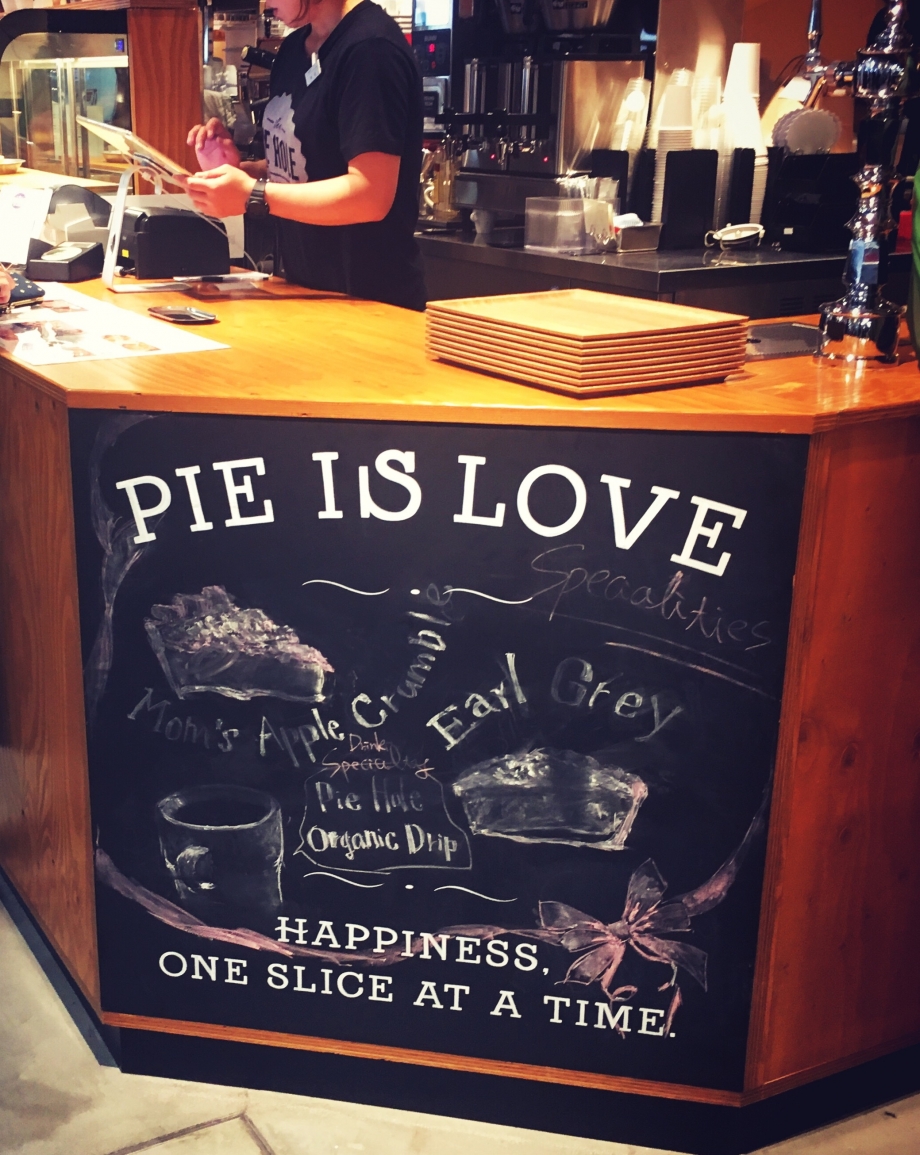 HOLE
PIE IS LOVE
Specialities
Mom's Apple Crumble
Earl Grey
Drink
Speciality
Pie Hole
Organic Drip
HAPPINESS,
ONE SLICE AT A TIME.